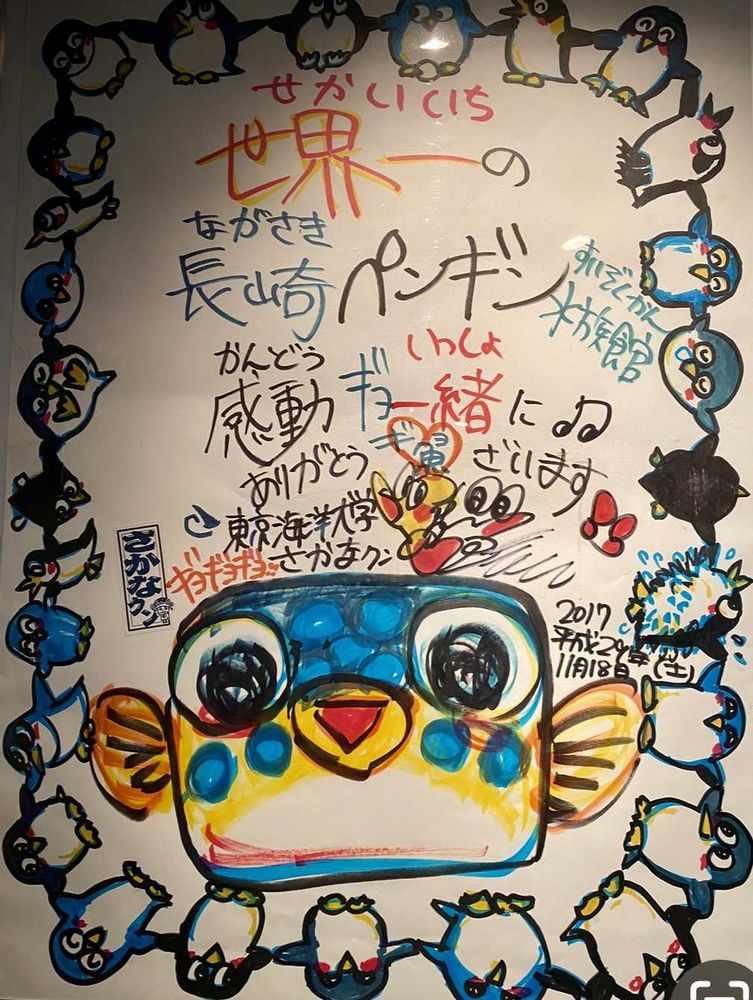 せかいいち
世界一の
ながさき
長崎ペンギン
すいぞくかん
水族館
かんどう
感動
いっしょ
ギョ一緒に♫♫
ありがとう
ギョ魚ざいます
東京海洋大学
さかなクン
ギョギョギョ
さかなクン
2017
平成29年
11月18日(土)